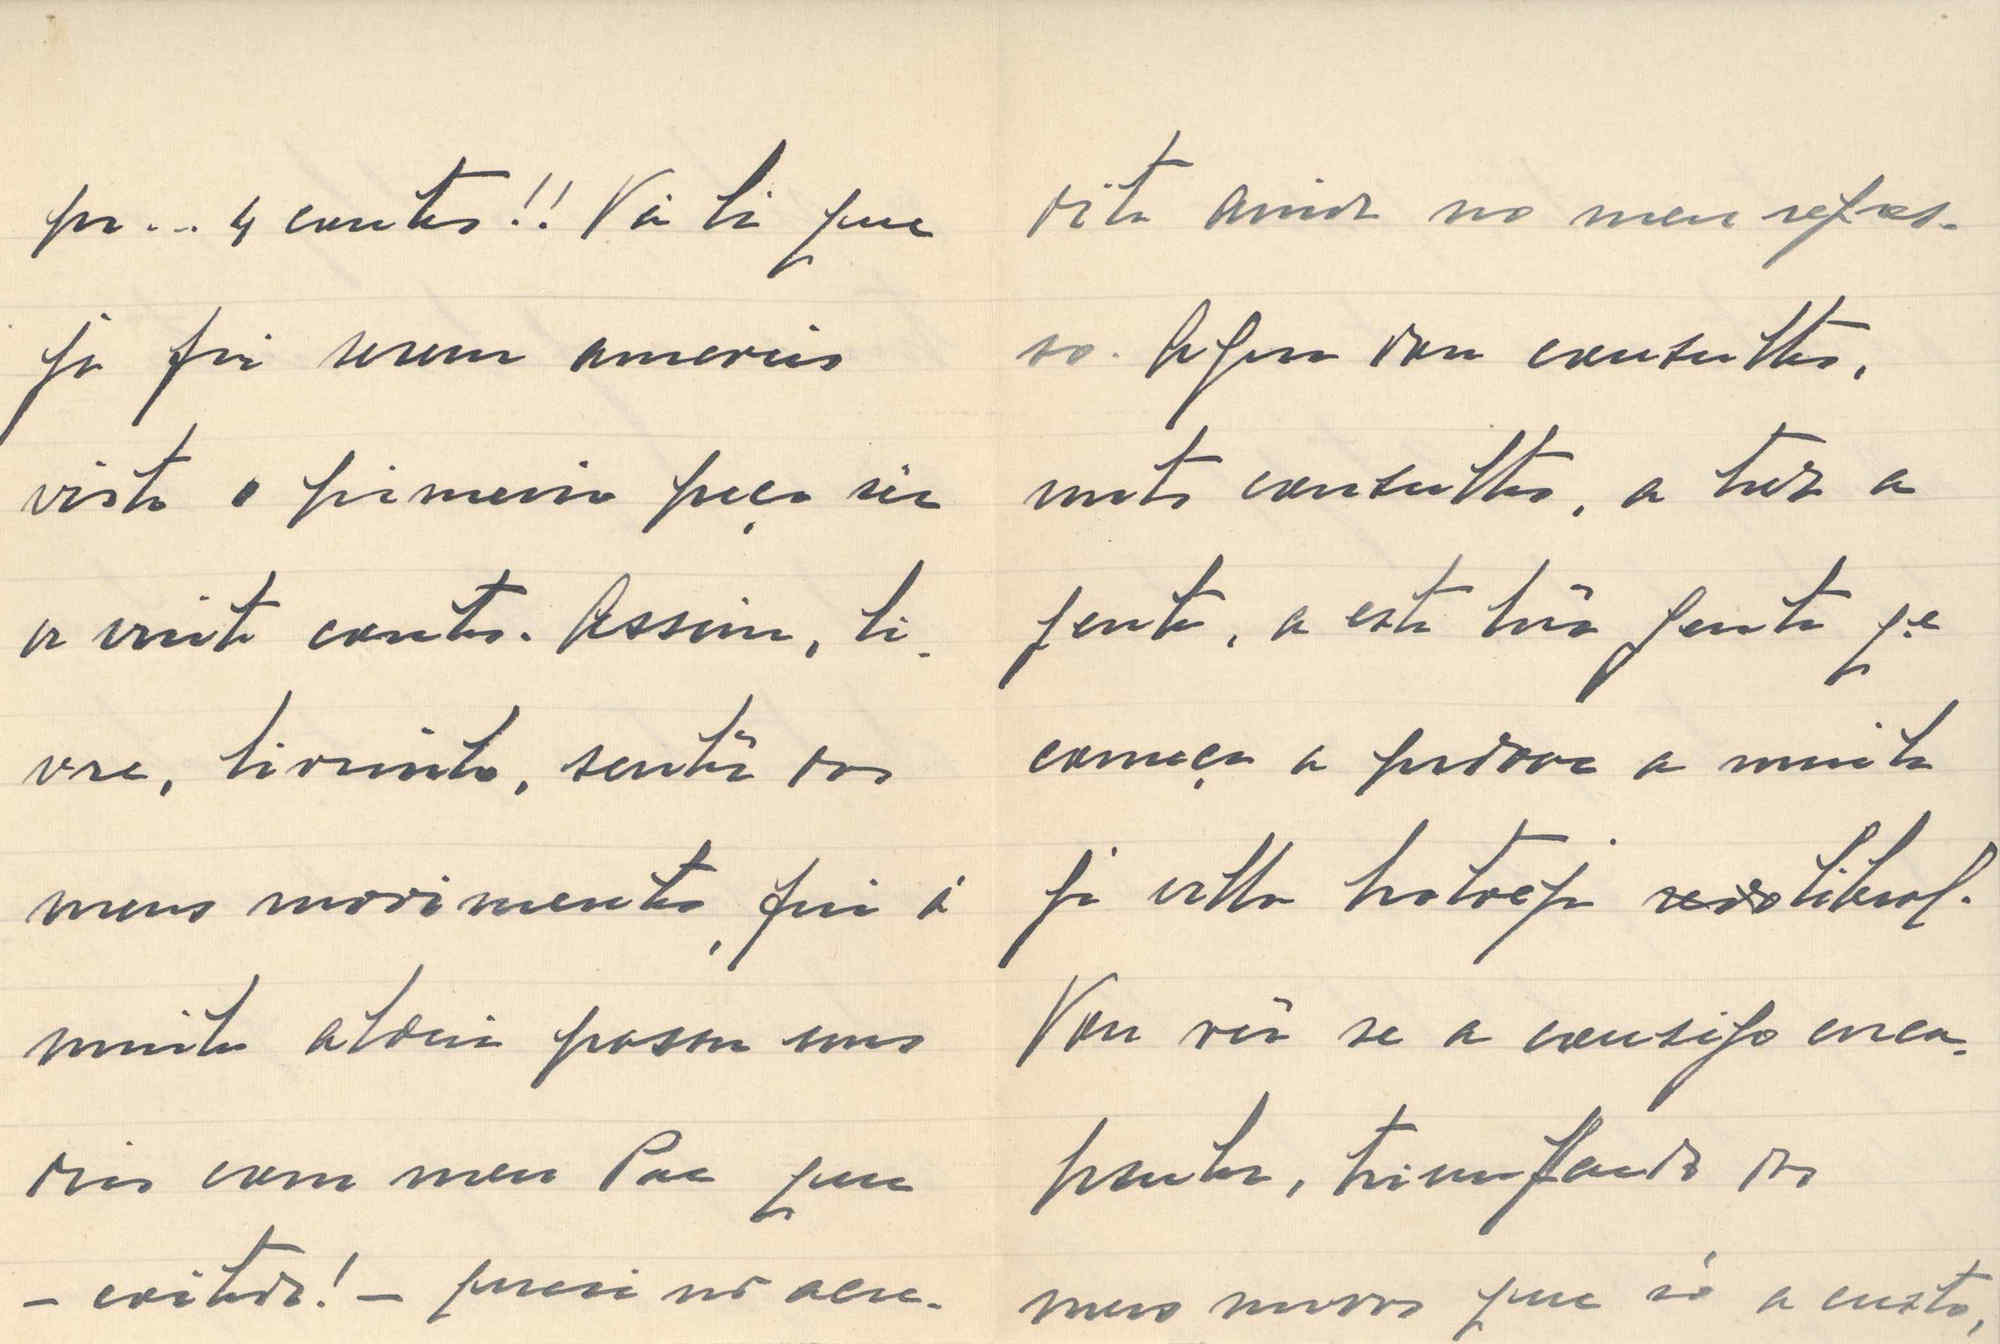 por... 4 contos!! Vá lá que
já foi serem amaveis
visto o primeiro preço sêr
os vinte contos. Assim, li-
vre, livrinho, senhôr dos
meus movimentos, fui á
minha aldeia passar uns
dias com meu Pae que
- coitado! - quasi nã acre-
dita ainda no meu regres-
so. Agora dou consultas,
muitas consultas, a toda a
gente, a esta bôa gente q.e
começa a perdoar a minha
já velha hotraofia liberal.
Vou vêr se a consigo enca-
minhar, triumfando dos
meus nervos que só a custo,